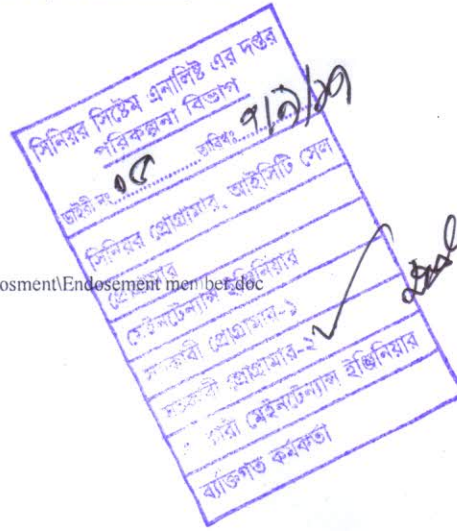 সিনিয়র সিষ্টেম এনালিষ্ট এর দপ্তর
পরিকল্পনা বিভাগ
ডাইরী নং ০৫ তারিখঃ ৭/৯/১৭
সিনিয়র প্রোগ্রামার, আইসিটি সেল
প্রোগ্রামার
মেইনটেন্যান্স ইঞ্জিনিয়ার
সহকারী প্রোগ্রামার-১
সহকারী প্রোগ্রামার-২
মেইনটেন্যান্স ইঞ্জিনিয়ার
ব্যক্তিগত কর্মকর্তা
osment\Endosement member.doc